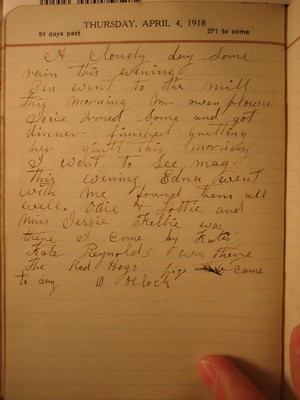 THURSDAY, APRIL 4, 1918
94 days past 271 to come
A Cloudy day Some
rain this evening
Ben went to the mill
this morning Mr owen plowed
Josie Ironed Some and got
dinner finished quilting
her quilt this morning
I went to See mag
this evening Edna went
with me found them all
well. Odie & Lottie and
Miss Jessie was
there I come by Kates
Kate Reynolds was there
The Red Hogs pigs came
to day 10 oclock